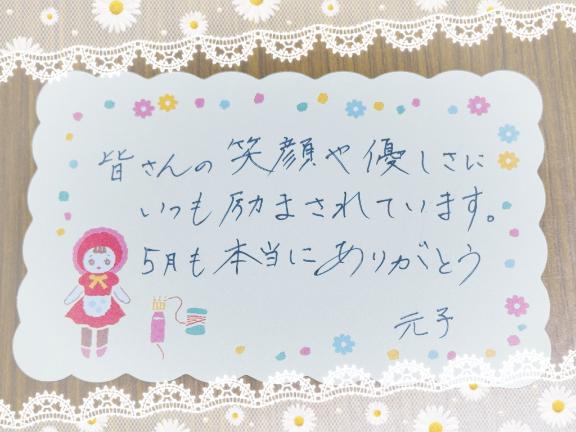 皆さんの笑顔や優しさに
いつも励まされています。
5月も本当にありがとう
元子